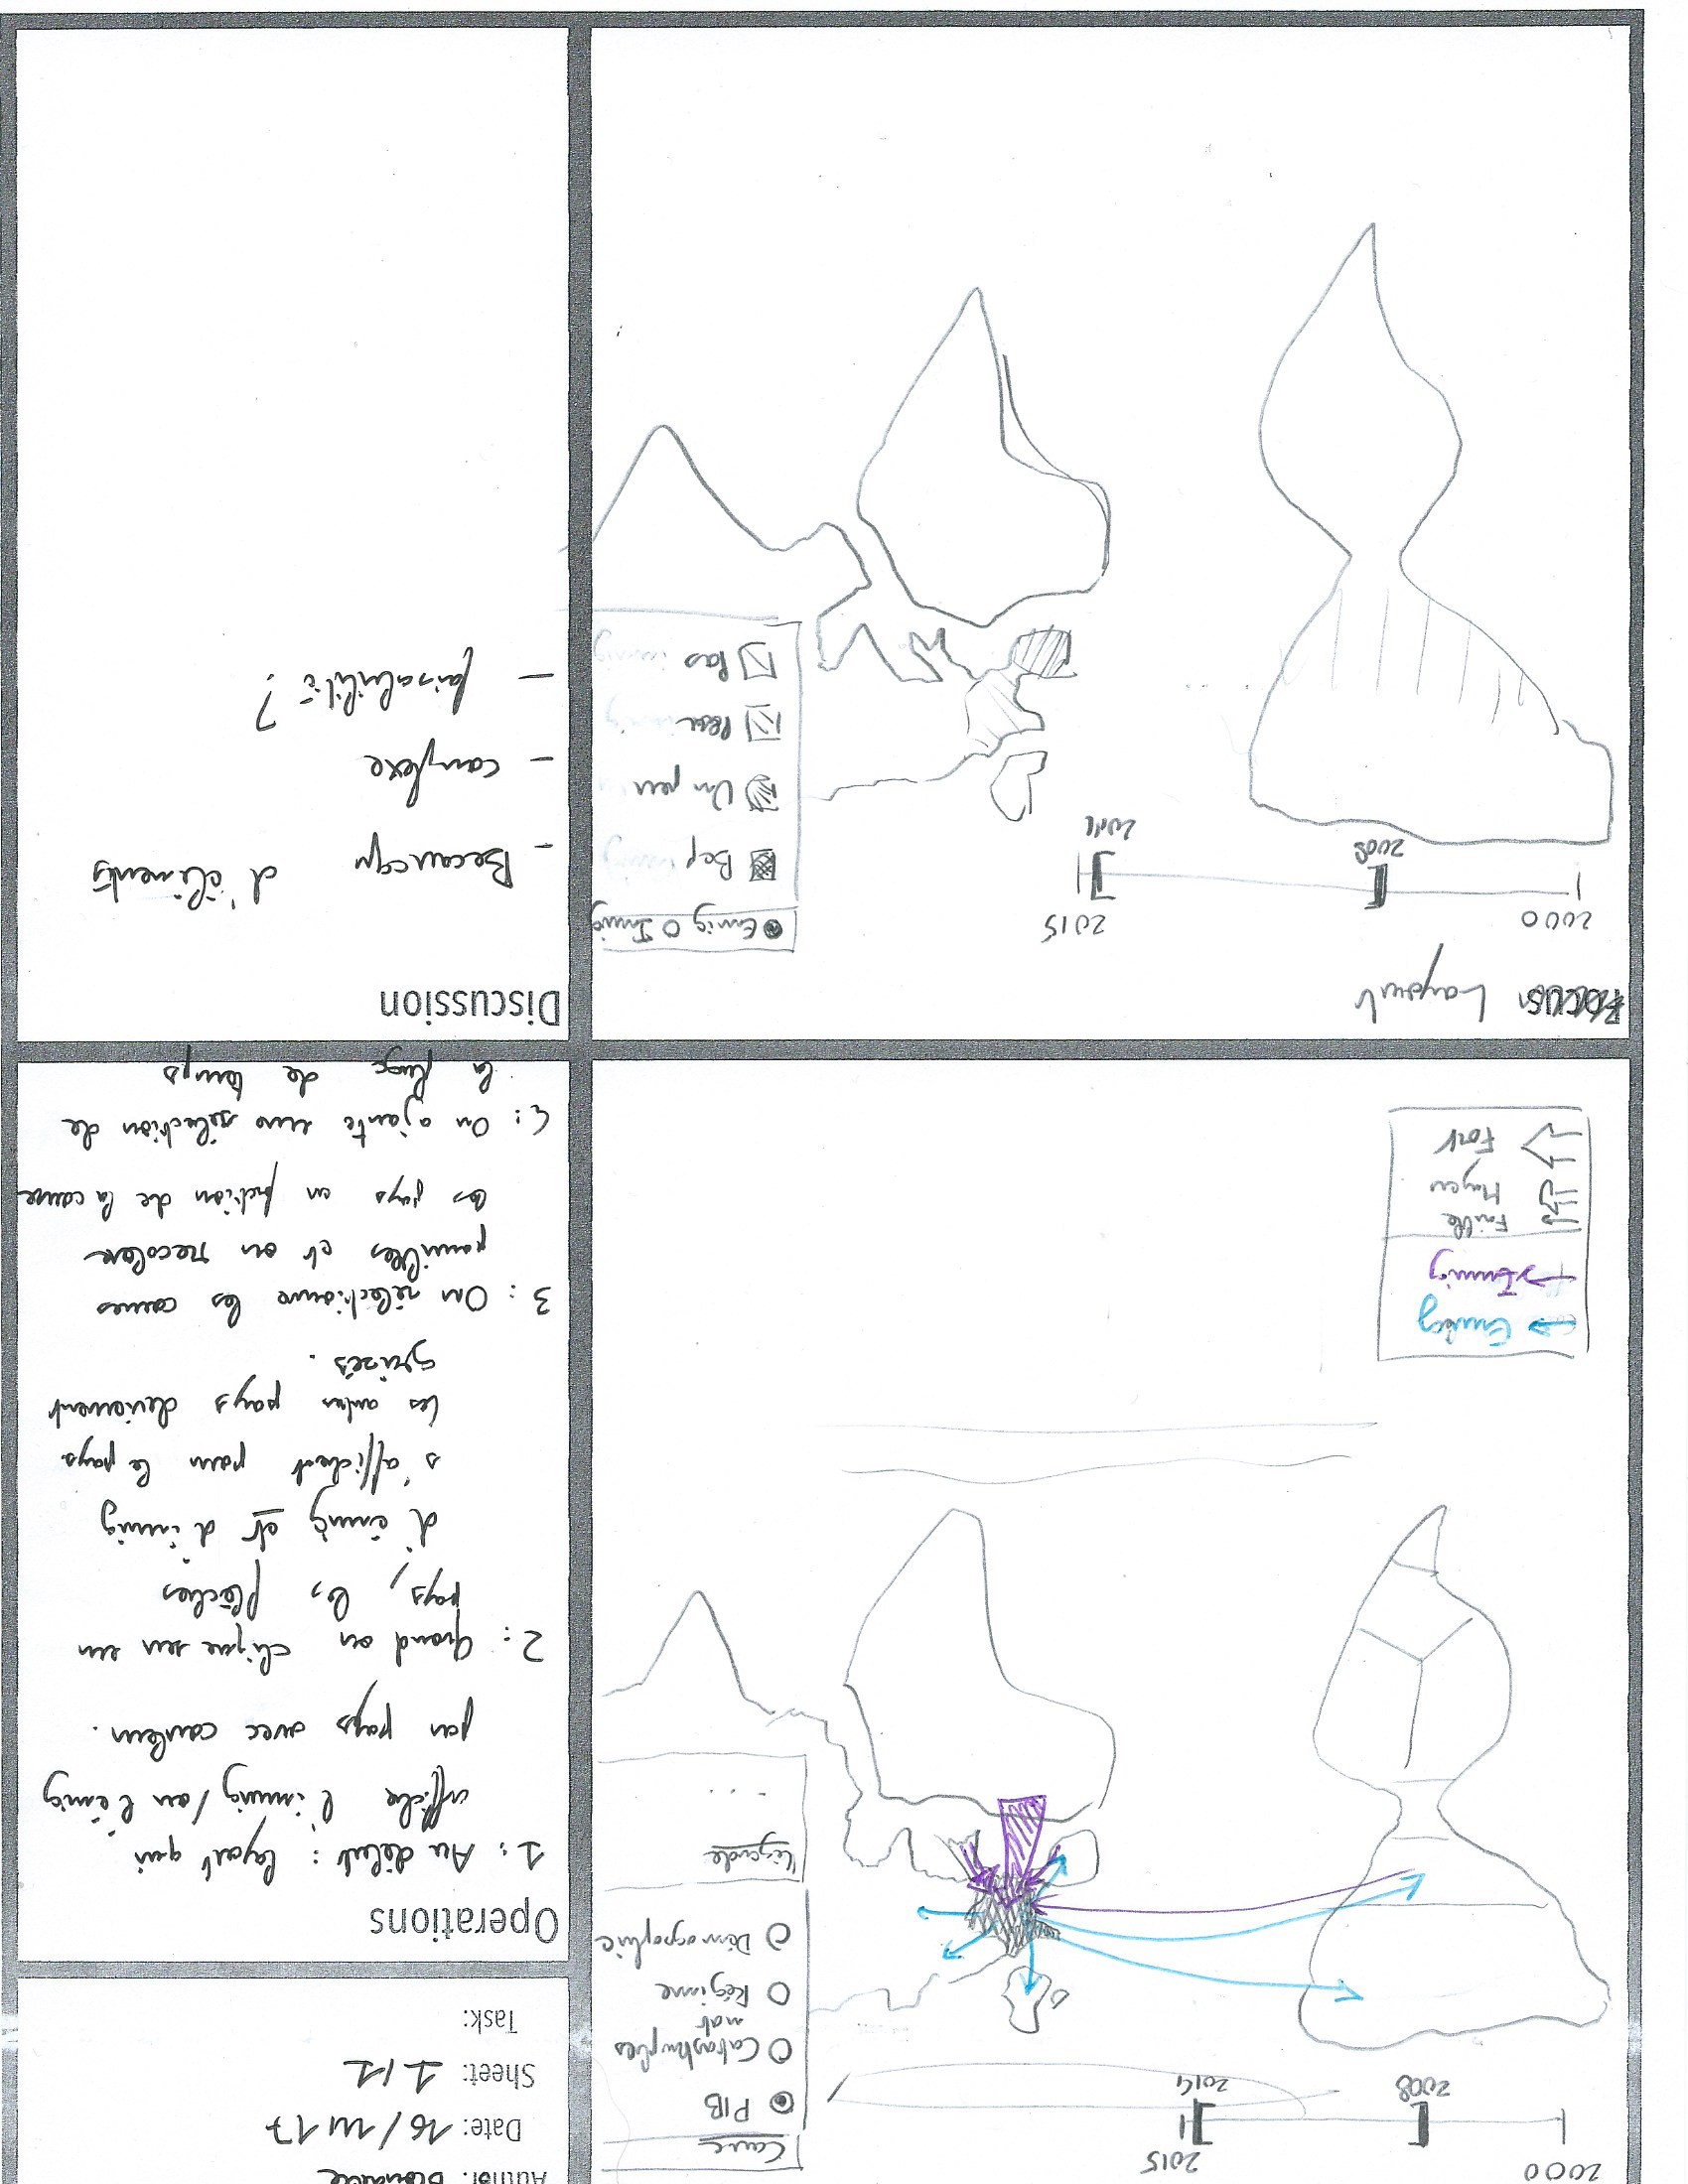 2000
2015
2008
2014
Cause
PIB
Catastrophes
nat
Régime
Démographie
Légende
...
Emig
Immig
Faible
Moyen
Fort
Author:
Date: 16/11/17
Sheet: 1/1
Task:
Operations
1: Au début : layout qui
affiche l'immig/ou l'émig
par pays avec couleur.
2: Quand on clique sur un
pays, les flèches
d'émig et d'immig
s'affichent pour le pays
les autres pays deviennent
grisés.
3: On sélectionne les causes
possibles et on recolore
les pays en fction de la cause
4: On ajoute une sélection de
la plage de temps
FOCUS Layout
2000
2015
2008
2014
Emig O Immig
Bcp
Un peu
Peu
Pas
Discussion
- Beaucoup d'éléments
- complexe
- faisabilité ?